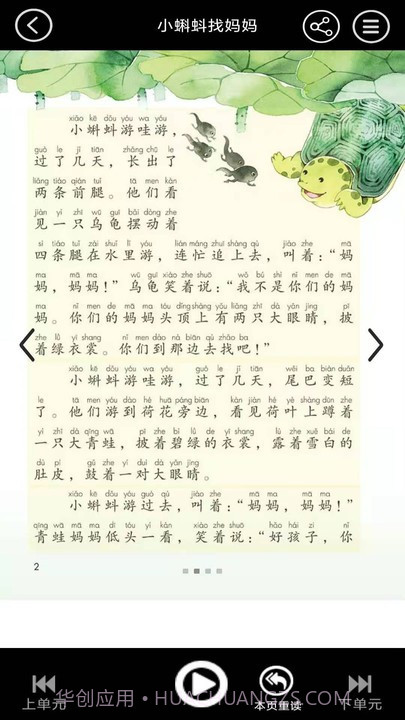 小蝌蚪找妈妈
xiǎo kē dǒu yóu wa yóu
小蝌蚪游哇游，
guò le jǐ tiān zhǎng chū le
过了几天，长出了
liǎng tiáo qián tuǐ tā men kàn
两条前腿。他们看
jiàn yì zhī wū guī bǎi dòng zhe
见一只乌龟摆动着
sì tiáo tuǐ zài shuǐ lǐ yóu lián máng zhuī shàng qù jiào zhe mā
四条腿在水里游，连忙追上去，叫着：“妈
ma mā ma wū guī xiào zhe shuō wǒ bú shì nǐ men de mā
妈，妈妈！”乌龟笑着说：“我不是你们的妈
ma nǐ men de mā ma tóu dǐng shàng yǒu liǎng zhī dà yǎn jing pī
妈。你们的妈妈头顶上有两只大眼睛，披
zhe lǜ yī shang nǐ men dào nà biān qù zhǎo ba
着绿衣裳。你们到那边去找吧！”
xiǎo kē dǒu yóu wa yóu guò le jǐ tiān wěi ba biàn duǎn
小蝌蚪游哇游，过了几天，尾巴变短
le tā men yóu dào hé huā páng biān kàn jiàn hé yè shàng dūn zhe
了。他们游到荷花旁边，看见荷叶上蹲着
yì zhī dà qīng wā pī zhe bì lǜ de yī shang lù zhe xuě bái de
一只大青蛙，披着碧绿的衣裳，露着雪白的
dù pí gǔ zhe yí duì dà yǎn jing
肚皮，鼓着一对大眼睛。
xiǎo kē dǒu yóu guò qù jiào zhe mā ma mā ma
小蝌蚪游过去，叫着：“妈妈，妈妈！”
qīng wā mā ma dī tóu yí kàn xiào zhe shuō hǎo hái zi nǐ
青蛙妈妈低头一看，笑着说：“好孩子，你
2
上单元
本页重读
下单元
华创应用·HUACHUANGZS.COM